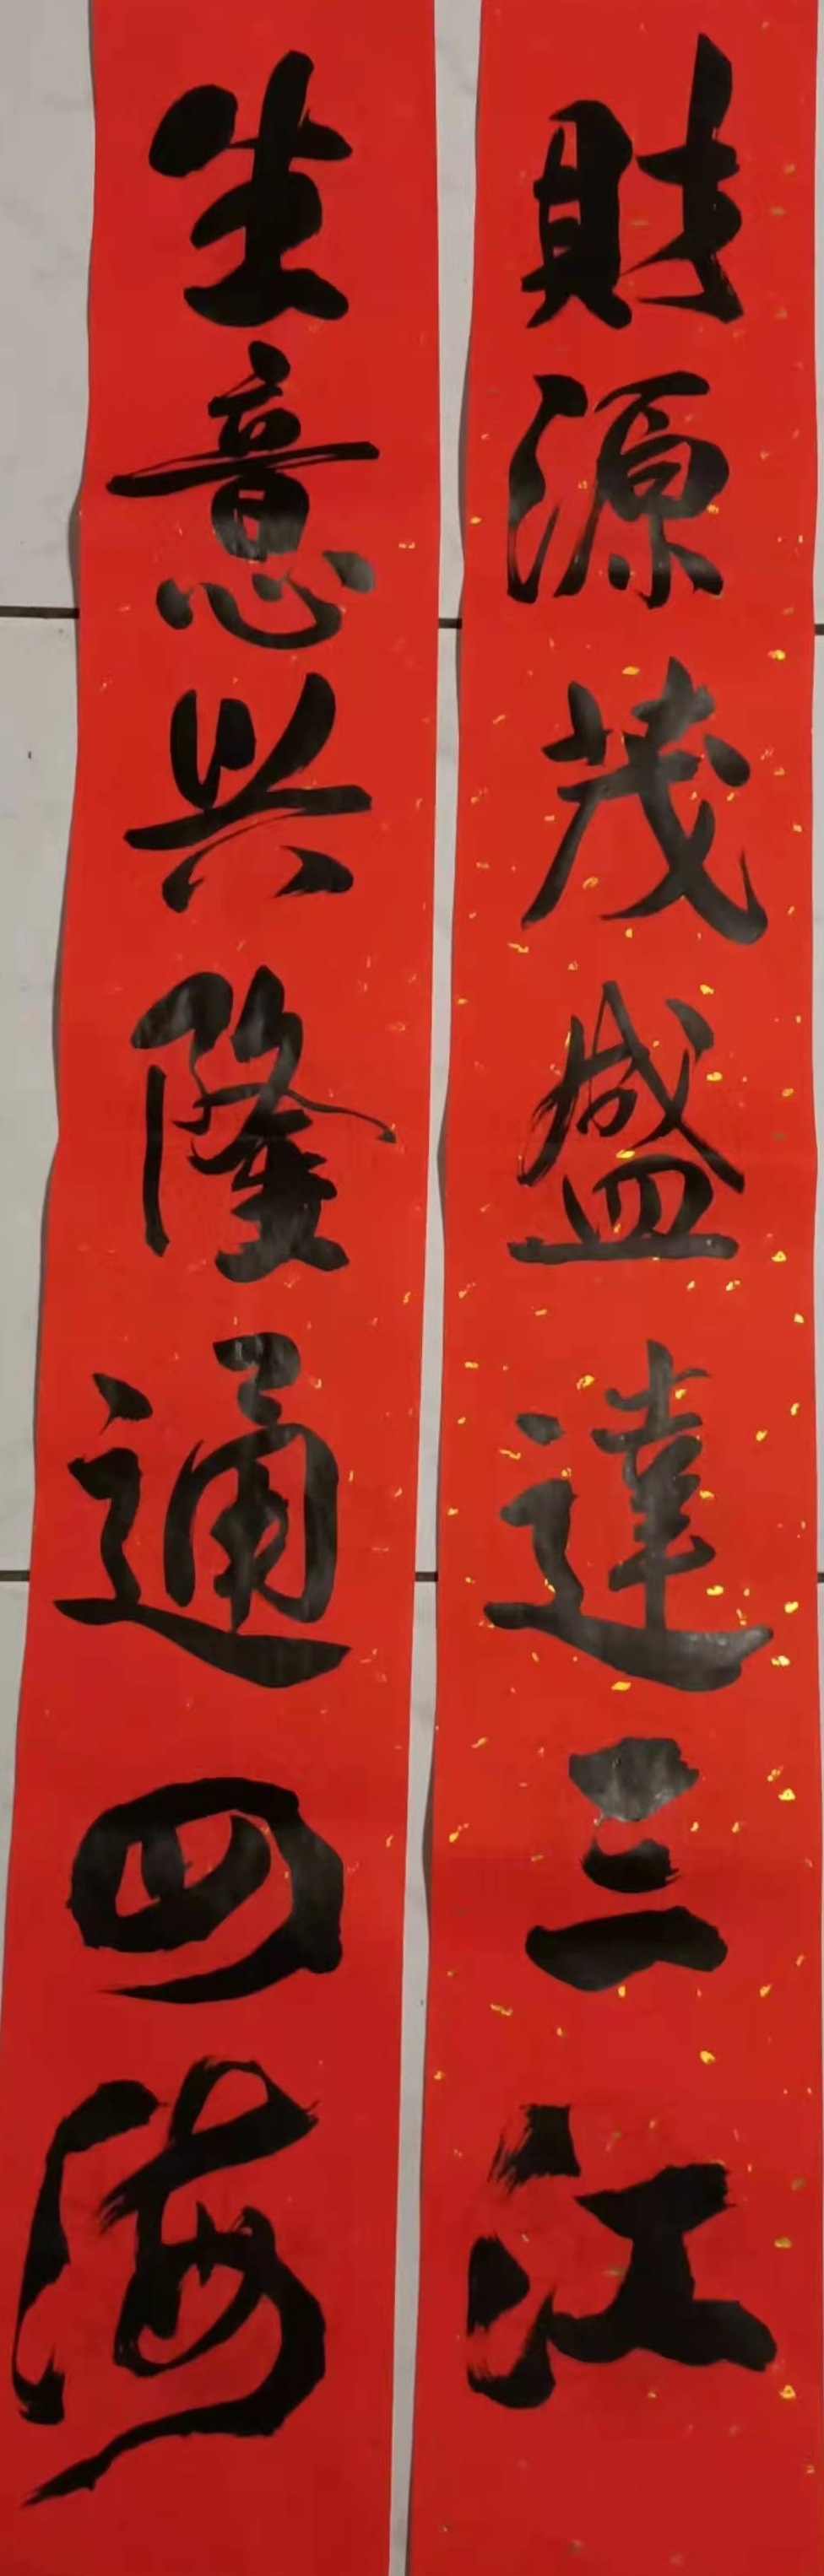 財源茂盛達三江
生意兴隆通四海